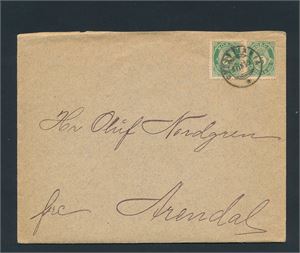 Hr Oluf Nordgren
Arendal